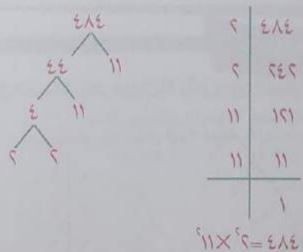 ٤٨٤
٤٤ ١١
٤ ١١
٢ ٢
٢ ٤٨٤
٢ ٢٤٢
١١ ١٢١
١١ ١١
١
٤٨٤=٢²×١١²